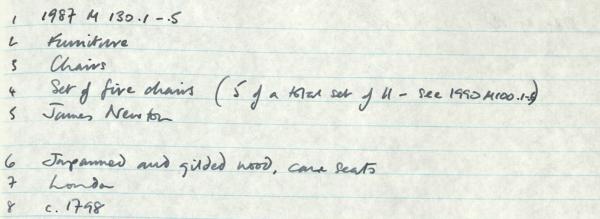 1 1987 M 130.1-.5
2 Furniture
3 Chairs
4 Set of five chairs (5 of a total set of 11 - see 1990 M100.1-5)
5 James Newton
6 Japanned and gilded wood, cane seats
7 London
8 c. 1798